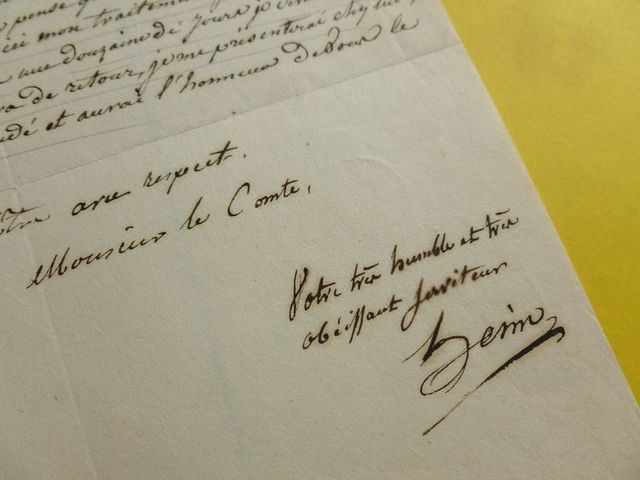 pense q
ici mon traitement
une douzaine de jours je
de retour, je me présenterai chez lui,
et aurai l'honneur de vous le
être avec respect.
Monsieur le Comte,
Votre très humble et très
obéissant serviteur
Heim